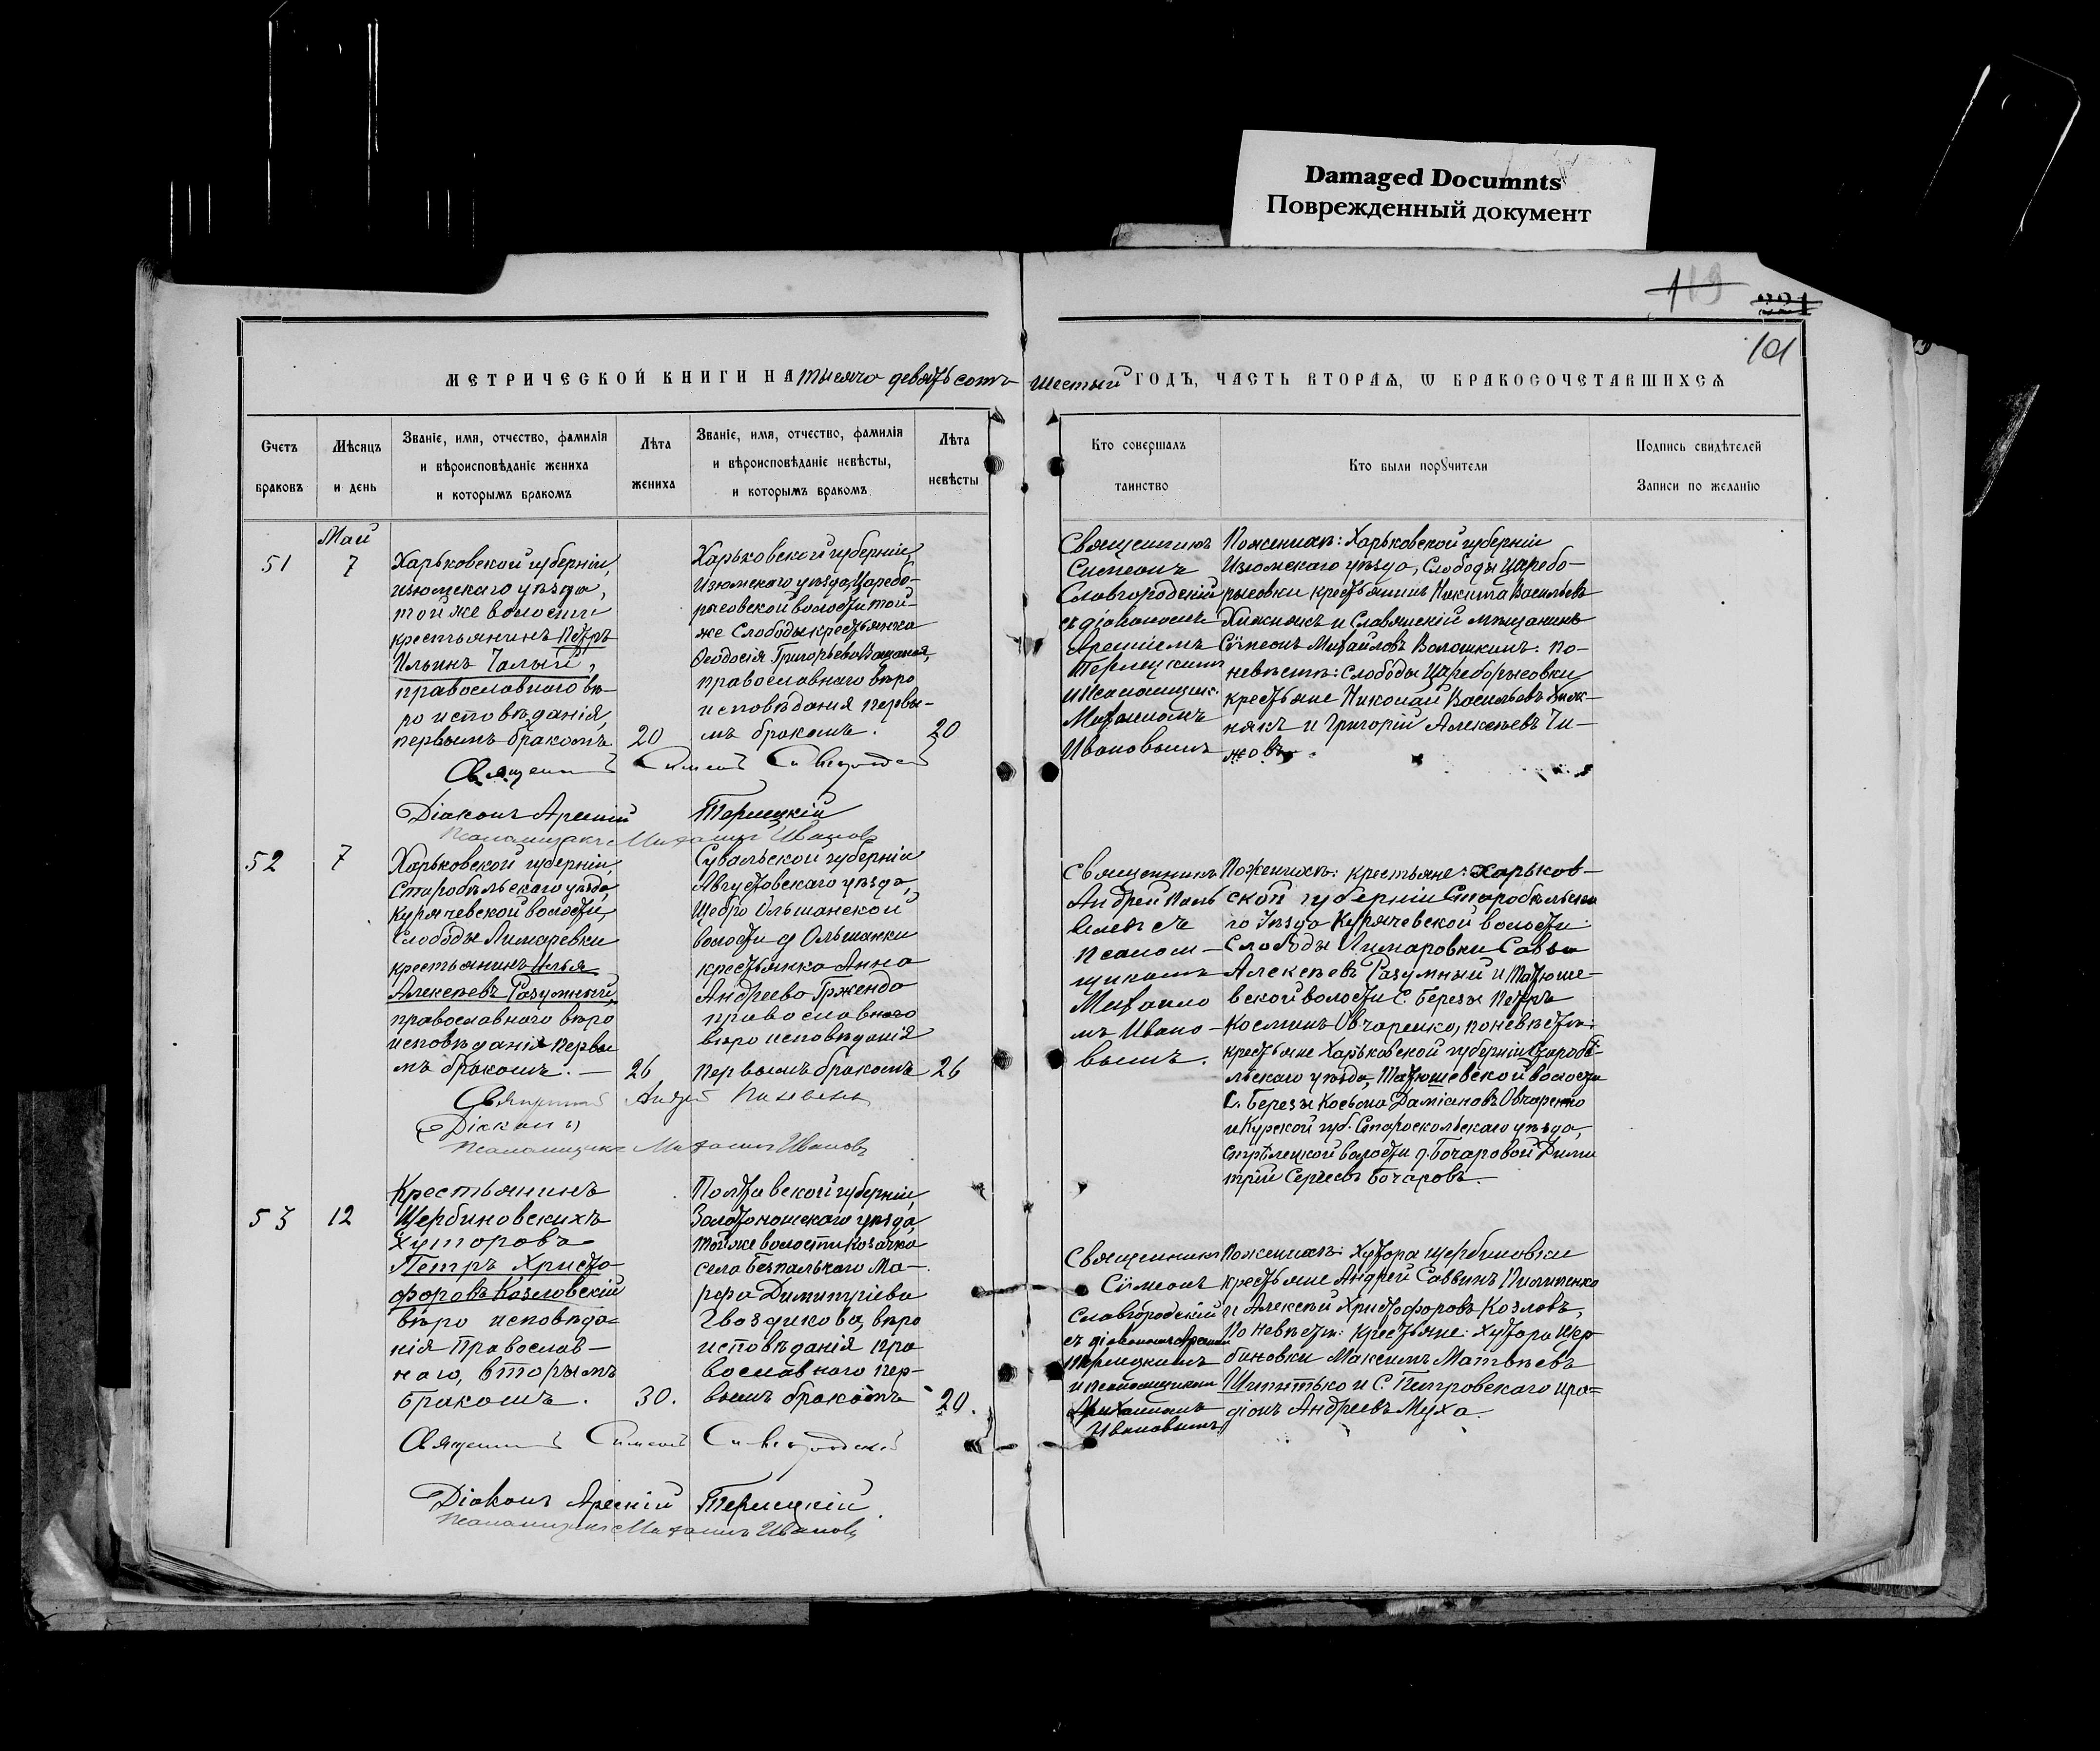 Damaged Documnts
Поврежденный документ
119
221
101
МЕТРИЧЕСКОЙ КНИГИ НА тысяча девятьсотъ шестый ГОДЪ, ЧАСТЬ ВТОРАЯ, Ѡ БРАКОСОЧЕТАВШИХСЯ
Счетъ браковъ
Мѣсяцъ и день
Званіе, имя, отчество, фамилія
и вѣроисповѣданіе жениха
и которымъ бракомъ
Лѣта жениха
Званіе, имя, отчество, фамилія
и вѣроисповѣданіе невѣсты,
и которымъ бракомъ
Лѣта невѣсты
Кто совершалъ таинство
Кто были порꙋчители
Подпись свидѣтелей
Записи по желанію
Май
51
7
Харьковской губерніи,
изюмскаго уѣзда,
той же волости
крестьянинъ Петръ
Ильинъ Чалый,
православнаго вѣ-
ро исповѣданія,
первымъ бракомъ
20
Харьковской губерніи,
Изюмскаго уѣзда, Царебо-
рисовской волости той-
же Слободы крестьянка
Ѳеодосія Григорьева
православнаго вѣро
исповѣданія первы-
мъ бракомъ.
20
Священникъ
Симеонъ
Славгородскій
съ діакономъ
Арсеніемъ
Терлецкимъ
и псаломщик.
Михаиломъ
Ивановымъ
По женихѣ: Харьковской губерніи
Изюмскаго уѣзда, Слободы Царебо-
рисовки крестьянинъ Никита Васильевъ
Хижнякъ и Славянскій мѣщанинъ
Сѵмеонъ Михайловъ Волошкинъ: по-
невѣстѣ: Слободы Цареборисовки
крестьяне Николай Васильевъ Хиж-
някъ и Григорій Алексѣевъ Чи-
жовъ.
Священникъ Симеонъ Славгородскій
Діаконъ Арсеній Терлецкій
Псаломщикъ Михаилъ Ивановъ
52
7
Харьковской губерніи,
Старобѣльскаго уѣзда,
Курячевской волости,
Слободы Лимаревки
крестьянинъ Илья
Алексѣевъ Разумный,
православнаго вѣро
исповѣданія первы
мъ бракомъ. —
26
Сувальской губерніи
Августовскаго уѣзда,
Щебро Ольшанской
волости д Ольшанки
крестьянка Анна
Андреева Гржендо
православнаго
вѣро исповѣданія
первымъ бракомъ
26
Священникъ
Андрей
съ
псалом-
щикомъ
Михаило
мъ Ивано-
вымъ.
По женихѣ: крестьяне: Харьков-
ской губерніи Старобѣльска
го Уѣзда Курячевской волости
Слободы Лимаровки Савва
Алексѣевъ Разумный и Татюше-
вской волости С. Березы Петръ
Косминъ Овчаренко, по невѣстѣ:
крестьяне Харьковской губерніи Старобѣ-
льскаго уѣзда, Татюшевской волости
С. Березы Косьма Даміановъ Овчаренко
и Курской губ. Старооскольскаго уѣзда,
Стрѣлецкой волости д. Бочаровой Дими
трій Сергѣевъ Бочаровъ.
Священникъ Андрей
Діаконъ
Псаломщикъ Михаилъ Ивановъ
53
12
Крестьянинъ
Щербиновскихъ
Хуторовъ
Петръ Христо-
форовъ Козловскій
вѣро исповѣда=
нія Православ-
наго, вторымъ
бракомъ.
30.
Полтавской губерніи,
Золотоношскаго уѣзда,
той же волости козачка
села Безпальчаго Ма-
рфа Димитріева
Гвоздикова, вѣро
исповѣданія пра
вославнаго пер-
вымъ бракомъ
20.
Священникъ
Сѵмеонъ
Славгородскій
съ діакономъ Арсеніемъ
Терлецкимъ
и псаломщикомъ
Михаиломъ
Ивановымъ
По женихѣ: Хутора Щербиновки
крестьяне Андрей Саввинъ Пилипенко
и Алексѣй Христофоровъ Козловъ,
По невѣстѣ: Крестьяне: Хутора Щер-
биновки Максимъ Матвѣевъ
и С. Петровскаго Ира=
діонъ Андреевъ Муха.
Священникъ Симеонъ Славгородскій
Діаконъ Арсеній Терлецкій
Псаломщикъ Михаилъ Ивановъ